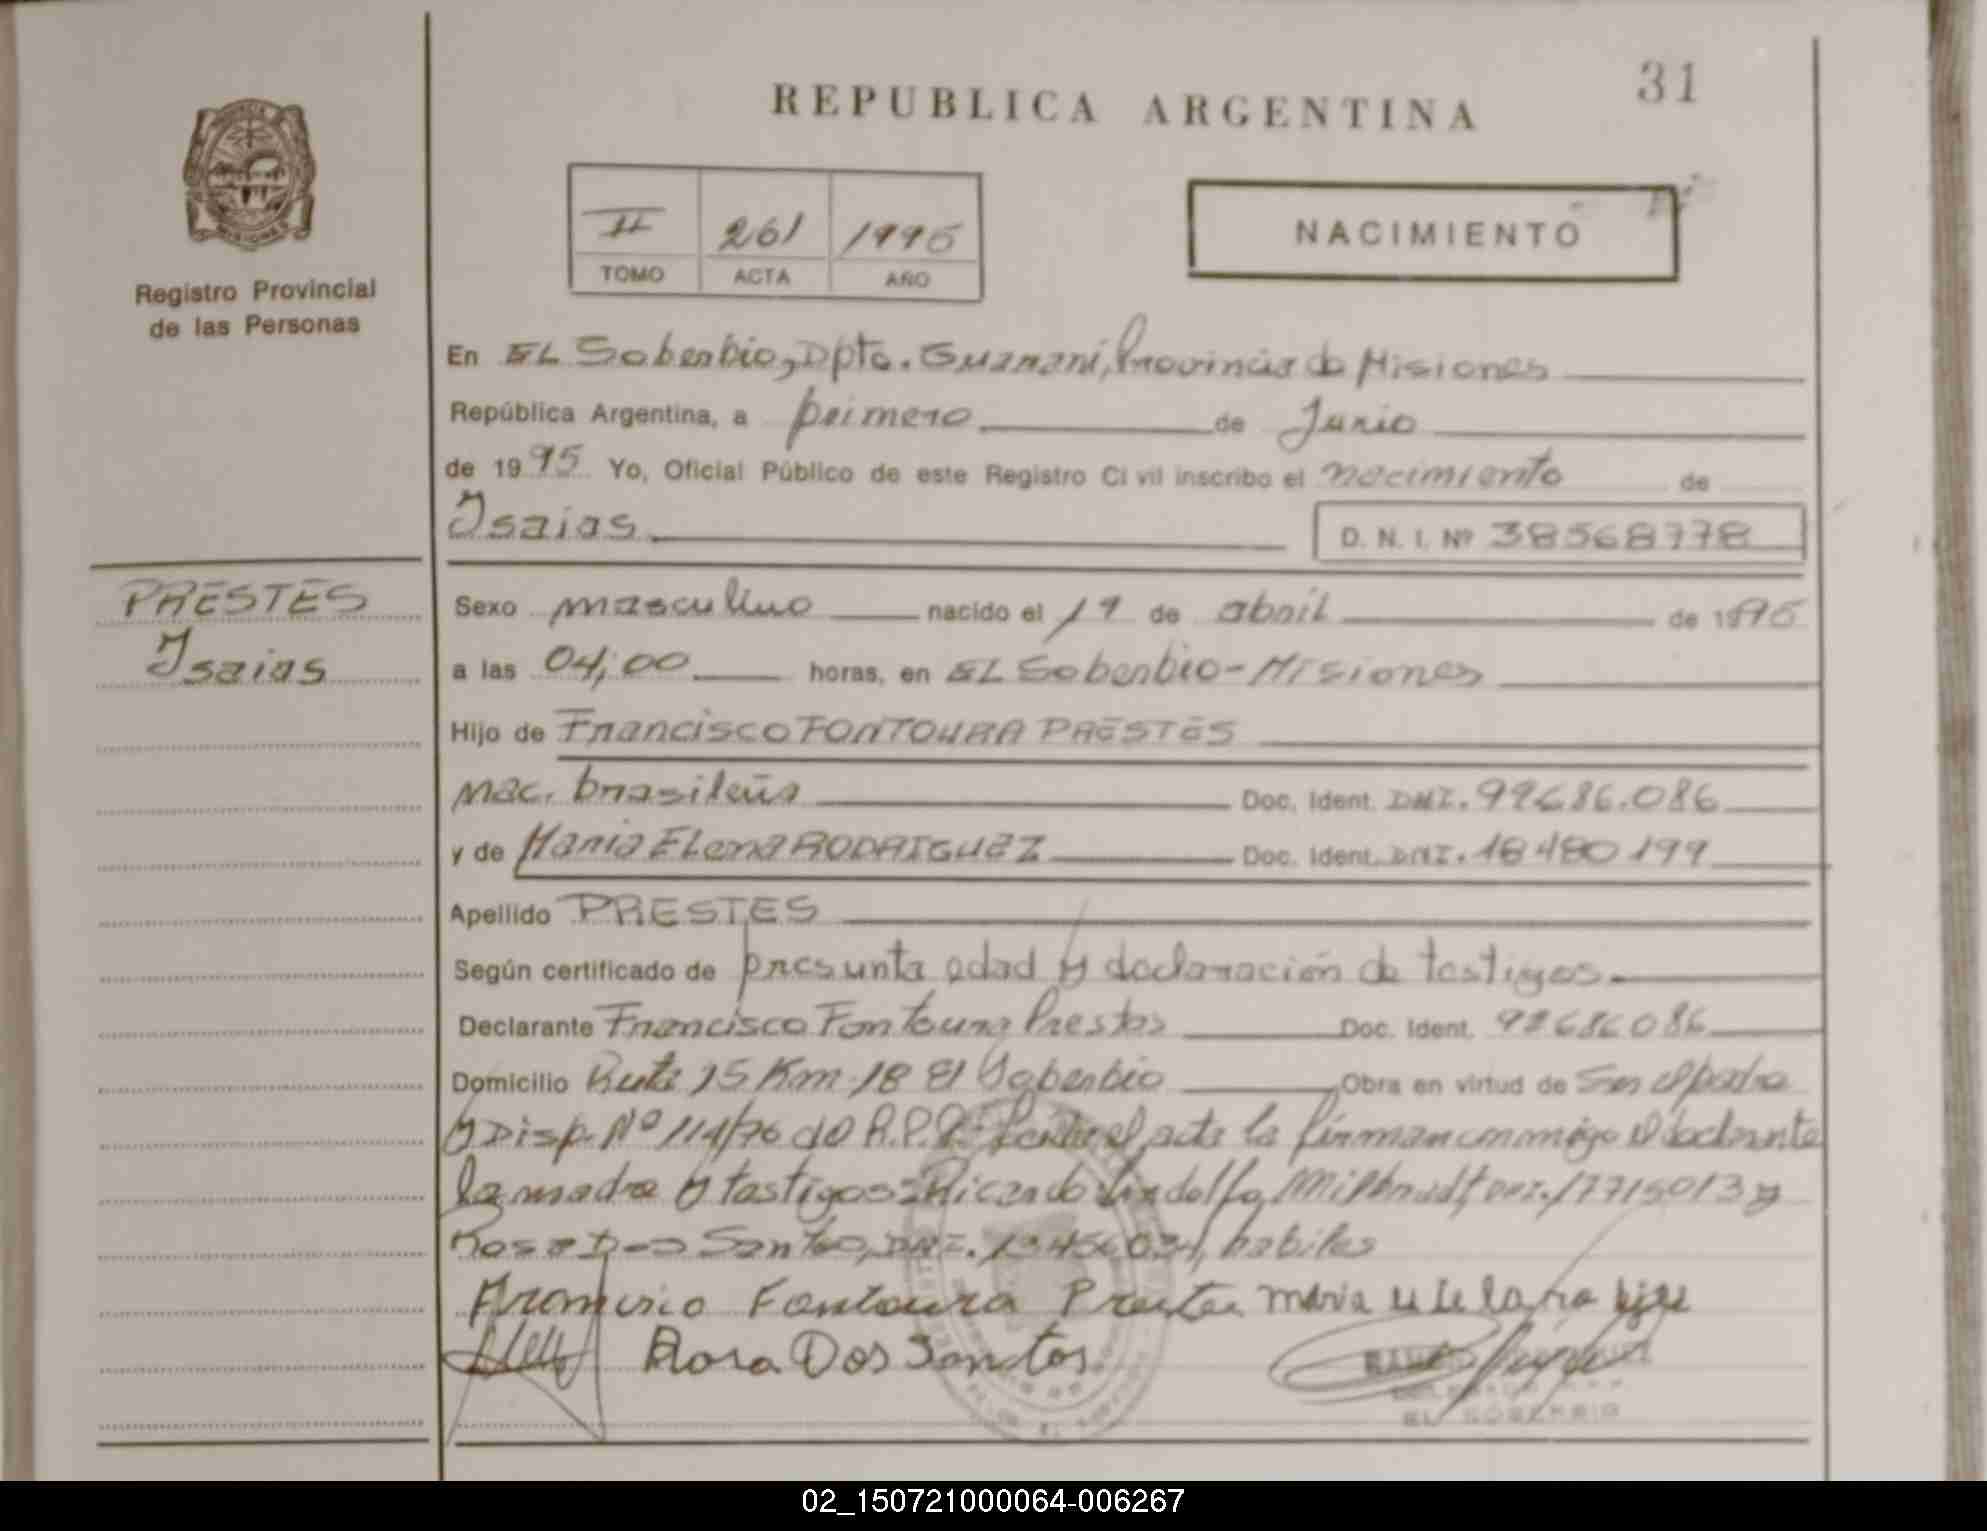 REPUBLICA ARGENTINA
31
II 261 1995
TOMO ACTA AÑO
NACIMIENTO
Registro Provincial
de las Personas
En EL Soberbio, Dpto. Guaraní, Provincia de Misiones
República Argentina, a primero de Junio
de 1995 Yo, Oficial Público de este Registro Civil inscribo el nacimiento de
Isaias D. N. I. Nº 38568778
PRESTES
Isaias
Sexo masculino nacido el 19 de abril de 1995
a las 04;00 horas, en EL Soberbio - Misiones
Hijo de Francisco FONTOURA PRESTES
nac. brasileña Doc. Ident. DNI. 92686.086
y de Maria Elena RODRIGUEZ Doc. Ident. DNI. 18480199
Apellido PRESTES
Según certificado de presunta edad y declaración de testigos
Declarante Francisco Fontoura Prestes Doc. Ident. 92686086
Domicilio Ruta 15 Km 18 El Soberbio Obra en virtud de Ser el padre
y Disp. Nº 114/76 del R.P.P. el acta la firman conmigo el declarante
la madre y testigos: Ricardo DNI. 17715013 y
Rosa Dos Santos, DNI. habiles
Francisco Fontoura Prestes maria
Rosa Dos Santos
EL SOBERBIO
02_150721000064-006267